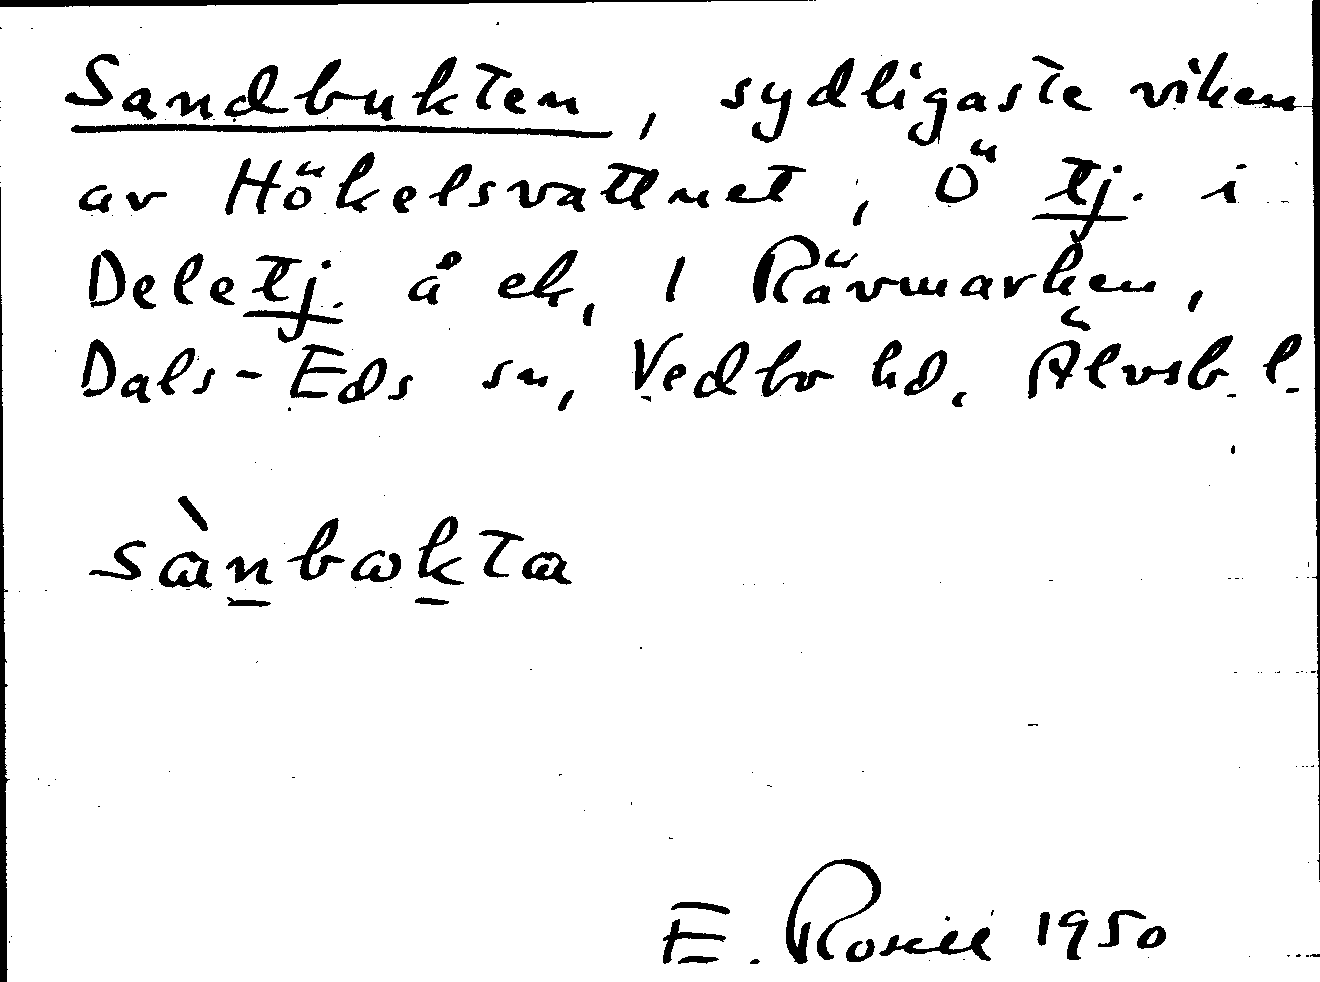 Sandbukten, sydligaste viken
av Hökelsvattnet, Ö tj. i
Deletj. å ek, 1 Rävmarken,
Dals-Eds sn, Vedbo hd. Älvsb. l.
sànbωkta
E. 1950